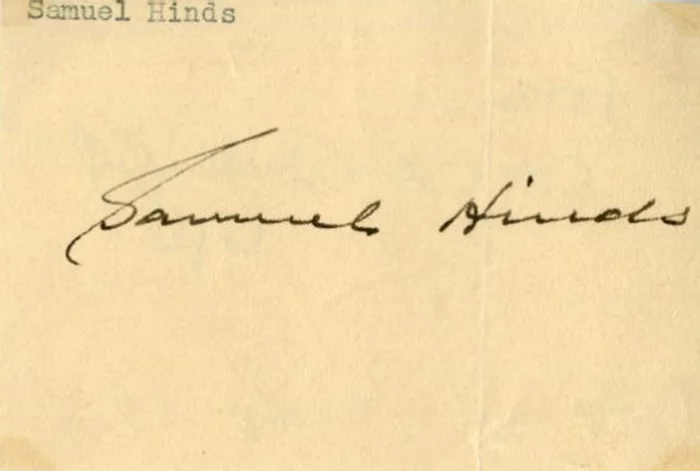 Samuel Hinds
Samuel Hinds